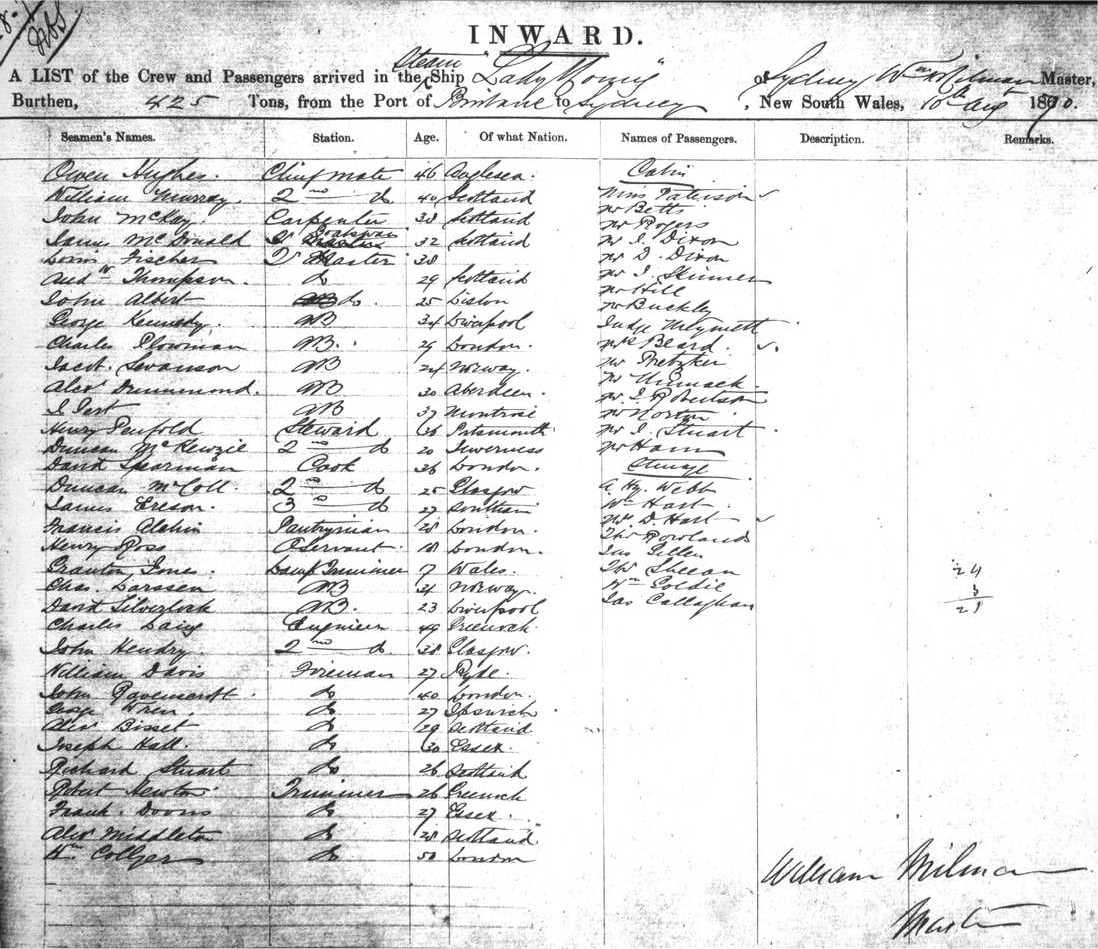 INWARD.
Steam
A LIST of the Crew and Passengers arrived in the Ship Lady Young of Sydney Wm Milman Master,
Burthen, 425 Tons, from the Port of Brisbane to Sydney, New South Wales, 10th Aug 1870.
Seamen's Names. Station. Age. Of what Nation. Names of Passengers. Description. Remarks.
Owen Hughes. Chief Mate 46 Anglesea. Cabin
William Murray. 2nd do 40 Scotland Miss Paterson
John McKay. Carpenter 38 Scotland Mr Betts
James McDonald Boatswain 32 Scotland Mr Rogers
Fischer Master 38 Mr J. Dixon
Andw Thompson. do 29 Scotland Mr D. Dixon
John Albert do. 25 Lisbon Mr J. Skinner
George Kennedy. AB 34 Liverpool Mr Hill
Charles Plowman AB. 29 London. Mr Buckley
Swanson AB 24 Norway. Judge
Alexr Drummond. AB 30 Aberdeen. Mrs Beard.
AB 37 Montreal Mr
Henry Penfold Steward 36 Portsmouth Mr
Duncan McKenzie 2nd do 20 Inverness Mr J. Robertson
David Spearman Cook 36 London. Mr Norton
Duncan McColl. 2nd do 25 Glasgow Mr J. Stuart
James 3rd do 27 Mr Hann
Francis Pantryman 28 London. Steerage
Henry Ross O Servant. 18 London. A. Hy. Webb
Jones. Lamp Trimmer Wales. Wm Hart
Chas. Larssen AB 31 Norway. Mrs D. Hart
David Silverlock AB. 23 Liverpool Thos Rowlands
Charles Laing Engineer 49 Greenock. Jas
John Hendry. 2nd do 38 Glasgow. Thos Sheean
William Davis Fireman 27 Ryde. Wm Goldie
John Ravenscroft. do 40 London. Jas Callaghan
George Wren. do 27 Ipswich
Alexr Bisset do 29 Scotland
Joseph Hall. do 30 Essex.
Richard Stuart do 26 Scotland
Robert Newton Trimmer 26 Greenock
Frank. do 27 Essex.
Alexr Middleton do 28 Scotland
Wm Collyer do 50 London
24
3
21
William Milman
Master